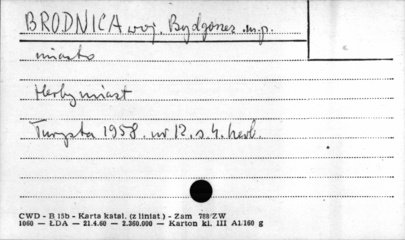 BRODNICA woj. Bydgoszcz m.p.
miasto
Herby miast
Turysta 1958. nr 12. s. 4. herb
CWD - B 15b - Karta katal. (z liniat.) - Zam 788/ZW
1060 — ŁDA — 21.4.60 — 2.360.000 — Karton kl. III A1.160 g